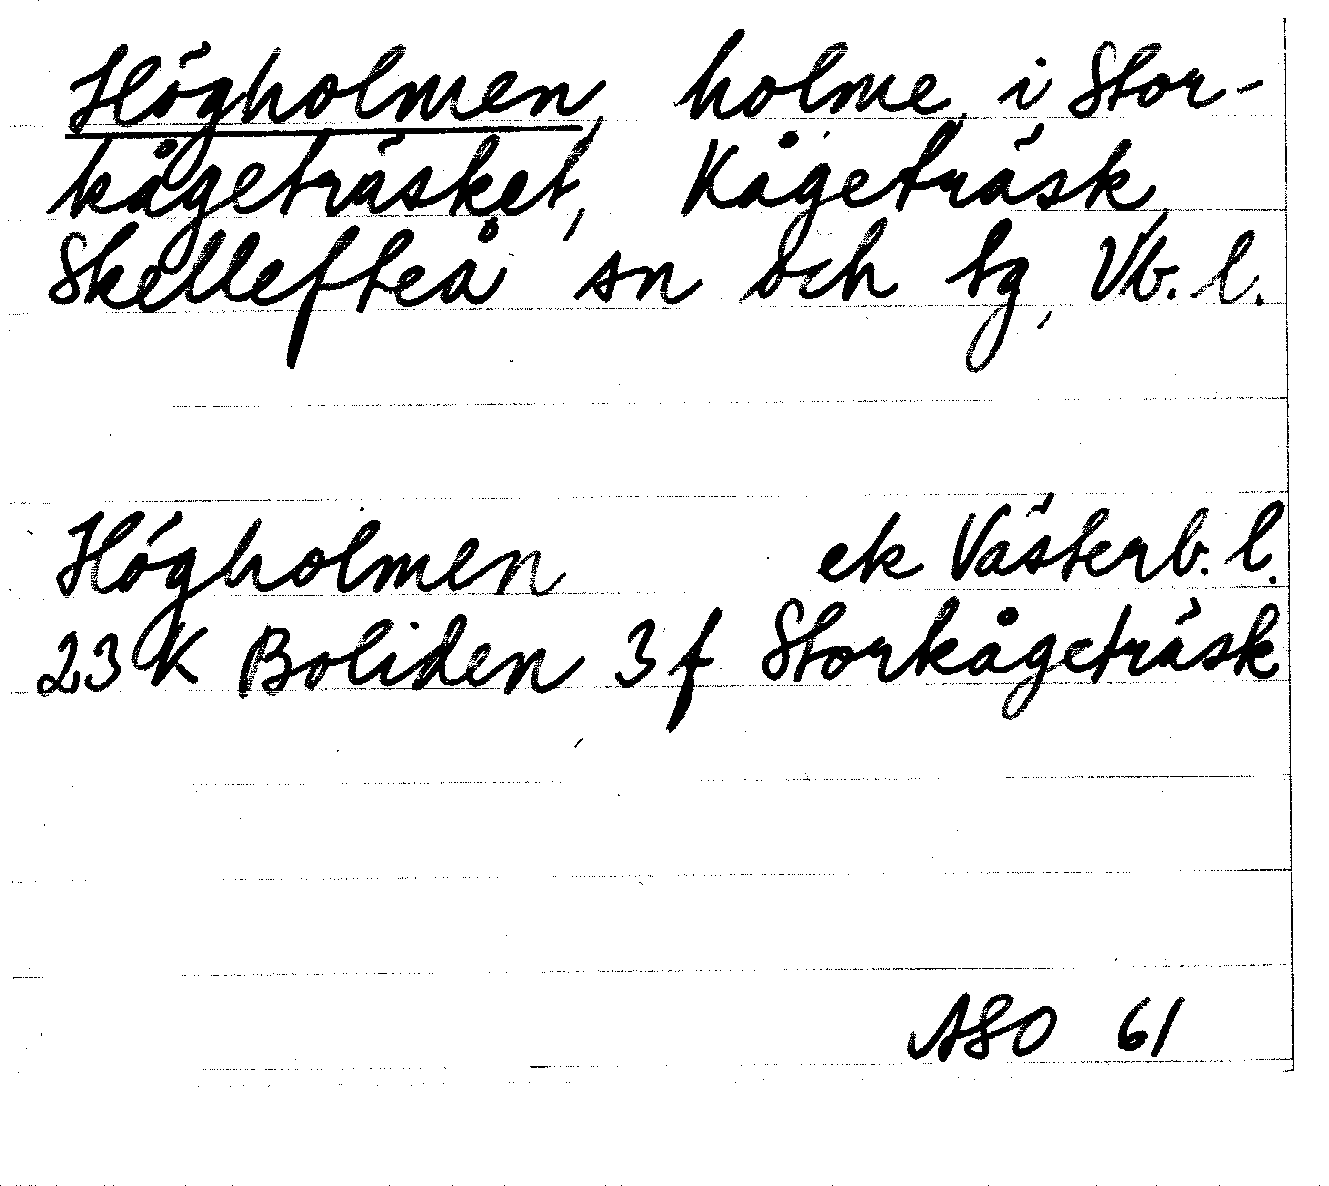 Högholmen, holme i Stor-
kågeträsket, Kågeträsk,
Skellefteå sn och tg, Vb. l.
Högholmen ek Västerb. l.
23 K Boliden 3 f Storkågeträsk
ASO 61